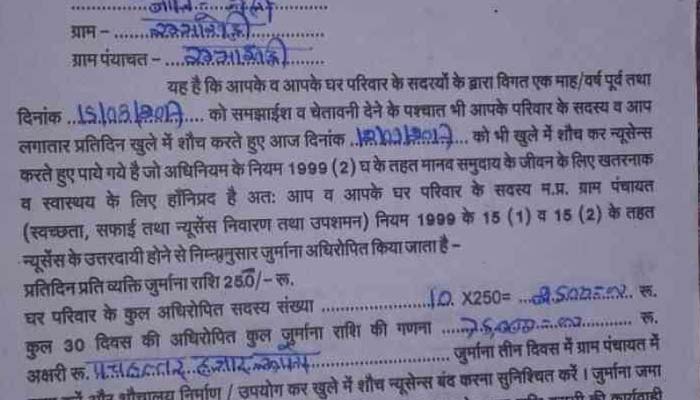 ग्राम –
ग्राम पंयाचत –
यह है कि आपके व आपके घर परिवार के सदस्यों के द्वारा विगत एक माह/वर्ष पूर्व तथा
दिनांक ..15/03/2017.... को समझाईश व चेतावनी देने के पश्चात भी आपके परिवार के सदस्य व आप
लगातार प्रतिदिन खुले में शौच करते हुए आज दिनांक को भी खुले में शौच कर न्यूसेन्स
करते हुए पाये गये है जो अधिनियम के नियम 1999 (2) घ के तहत मानव समुदाय के जीवन के लिए खतरनाक
व स्वास्थय के लिए हाँनिप्रद है अतः आप व आपके घर परिवार के सदस्य म.प्र. ग्राम पंचायत
(स्वच्छता, सफाई तथा न्यूसेंस निवारण तथा उपशमन) नियम 1999 के 15 (1) व 15 (2) के तहत
न्यूसेंस के उत्तरदायी होने से निम्नानुसार जुर्माना अधिरोपित किया जाता है –
प्रतिदिन प्रति व्यक्ति जुर्माना राशि 250/– रू.
घर परिवार के कुल अधिरोपित सदस्य संख्या ........................10. X250= ..2500=00 रू.
कुल 30 दिवस की अधिरोपित कुल जुर्माना राशि की गणना ....75000=00............. रू.
अक्षरी रू. पचहत्तर हजार रूपये........................ जुर्माना तीन दिवस में ग्राम पंचायत में
और शौचालय निर्माण / उपयोग कर खुले में शौच न्यूसेन्स बंद करना सुनिश्चित करें। जुर्माना जमा
की कार्यवाही